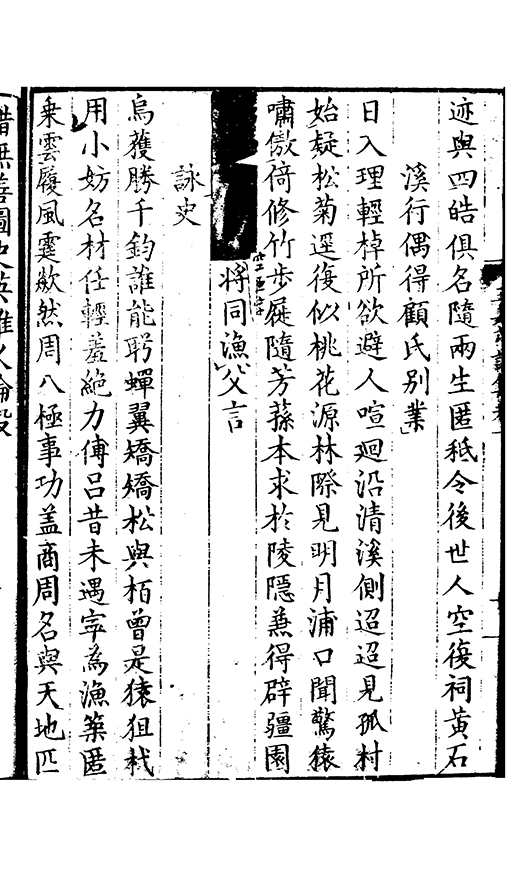 迹與四皓俱名隨兩生匿秖令後世人空復祠黃石
溪行偶得顧氏別業
日入理輕棹所欲避人喧迴沿清溪側迢迢見孤村
始疑松菊逕復似桃花源林際見明月浦口聞驚猿
嘯傲倚修竹步屣隨芳蓀本求於陵隱兼得辟疆園
將同漁父言
詠史
烏獲勝千鈞誰能矜蟬翼矯矯松與栢曾是猿狙杙
用小妨名材任輕羞絶力傅呂昔未遇寧為漁築匿
乗雲履風霆歘然周八極事功盖商周名與天地匹